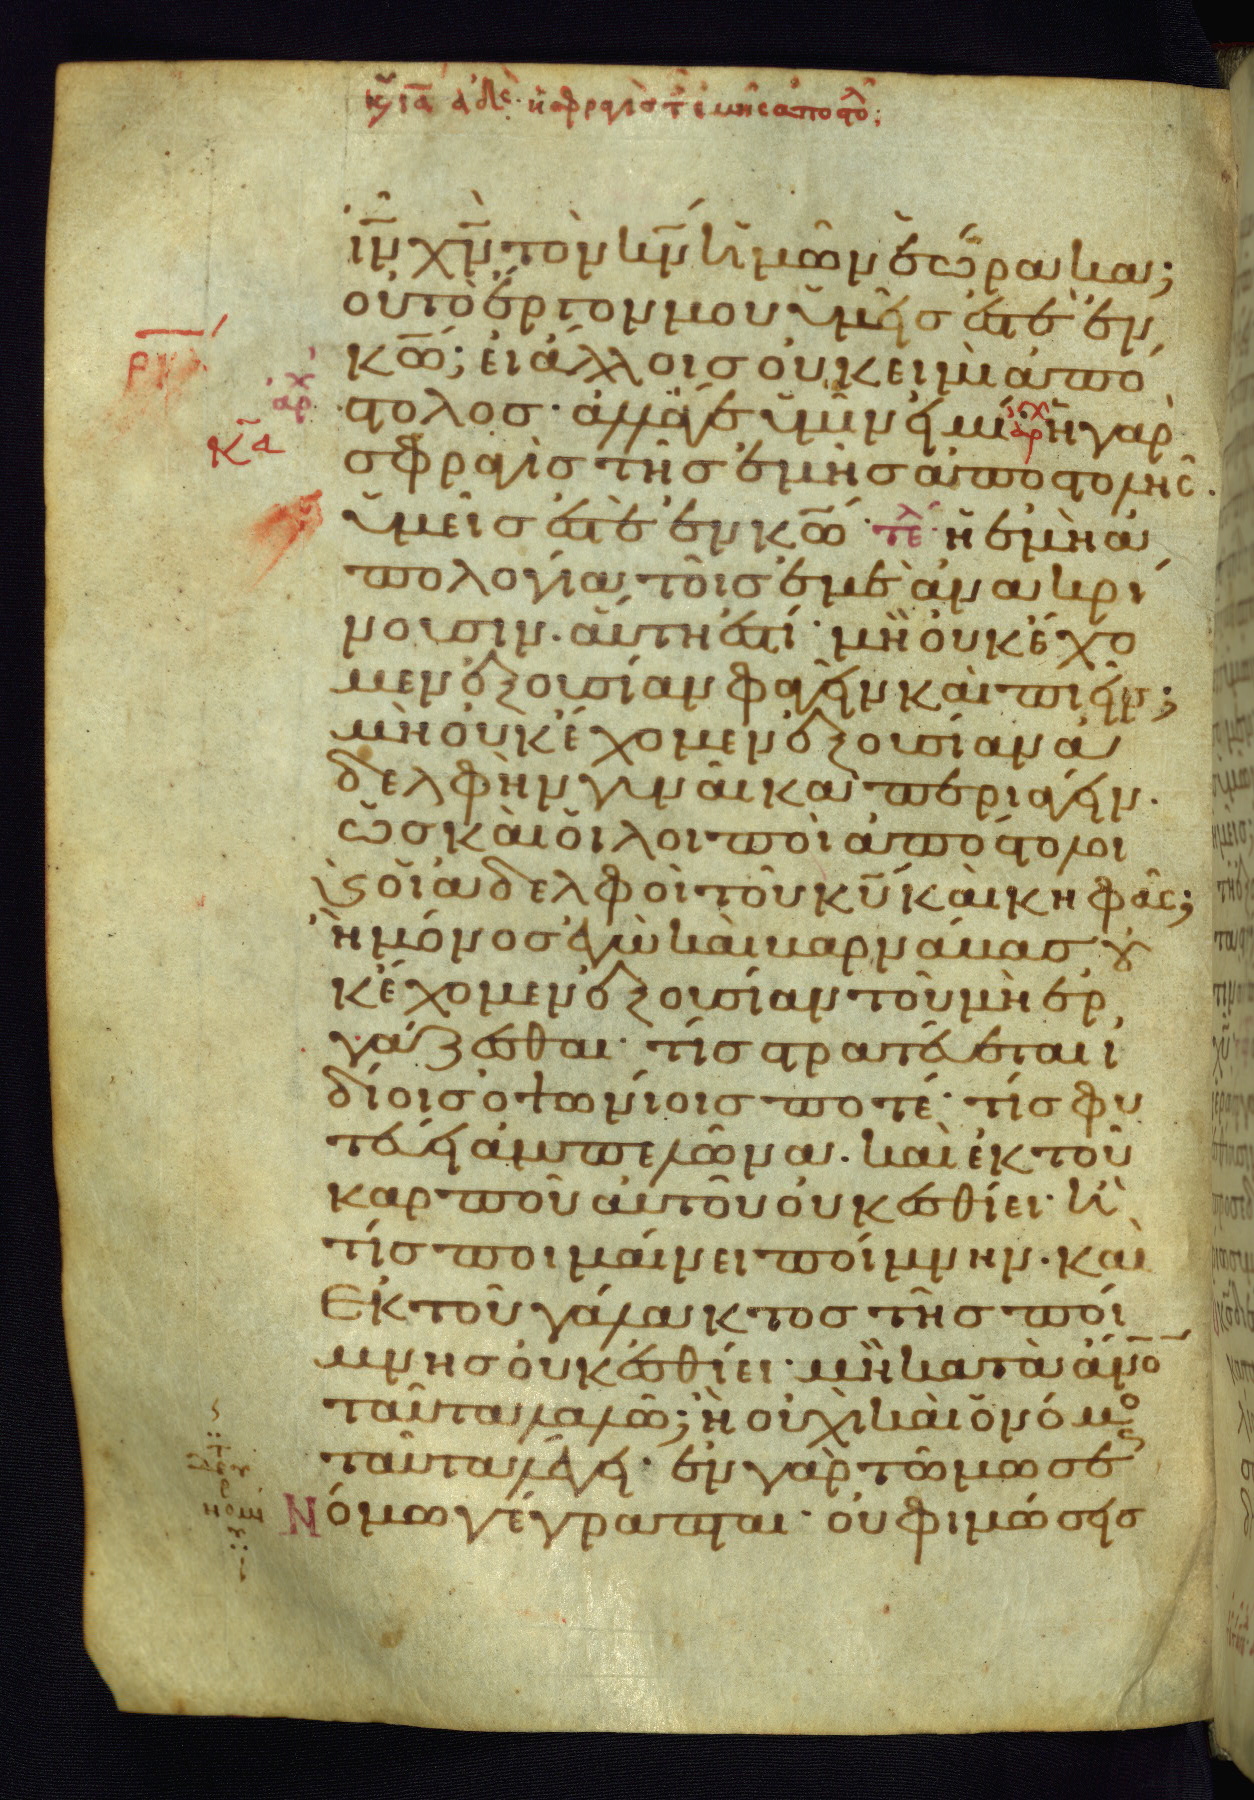 κυ ια αδε· η σφραγὶς τ ἐμῆς ἀποστολ;
ιν χν τὸν κν ἡμῶν ἑώρακα;
οὐ τὸ ἔργον μου ὑμεῖς ἐστὲ ἐν
κω; εἰ ἄλλοις οὐκ εἰμὶ ἀπό
στολος· ἀλλά γε ὑμῖν εἰμί· ἡ γὰρ
αρχ
αρχ
ρκ
κα
σφραγὶς τῆς ἐμῆς ἀποστολῆς.
ὑμεῖς ἐστὲ ἐν κω· τελ· ἡ ἐμὴ ἀ
πολογία τοῖς ἐμὲ ἀνακρί
νουσιν. αὕτη ἐστί· μὴ οὐκ ἔχο
μεν ἐξουσίαν φαγεῖν καὶ πιεῖν;
μὴ οὐκ ἔχομεν ἐξουσίαν ἀ
δελφὴν γυναῖκα περιάγειν.
ὡς καὶ οἱ λοιποὶ ἀπόστολοι
καὶ οἱ ἀδελφοὶ τοῦ κυ καὶ κηφᾶς;
ἢ μόνος ἐγὼ καὶ βαρνάβας οὐ
κ ἔχομεν ἐξουσίαν τοῦ μὴ ἐρ
γάζεσθαι· τίς στρατεύεται ἰ
δίοις ὀψωνίοις ποτέ· τίς φυ
τεύει ἀμπελῶνα. καὶ ἐκ τοῦ
καρποῦ αὐτοῦ οὐκ ἐσθίει· ἢ
τίς ποιμαίνει ποίμνην. καὶ
ἐκ τοῦ γάλακτος τῆς ποί
μνης οὐκ ἐσθίει· μὴ κατὰ ἄνον
ταῦτα λαλῶ; ἢ οὐχὶ καὶ ὁ νόμος
ταῦτα λέγει· ἐν γὰρ τῶ μωσέως
Νόμω γέγραπται· οὐ φιμώσεις